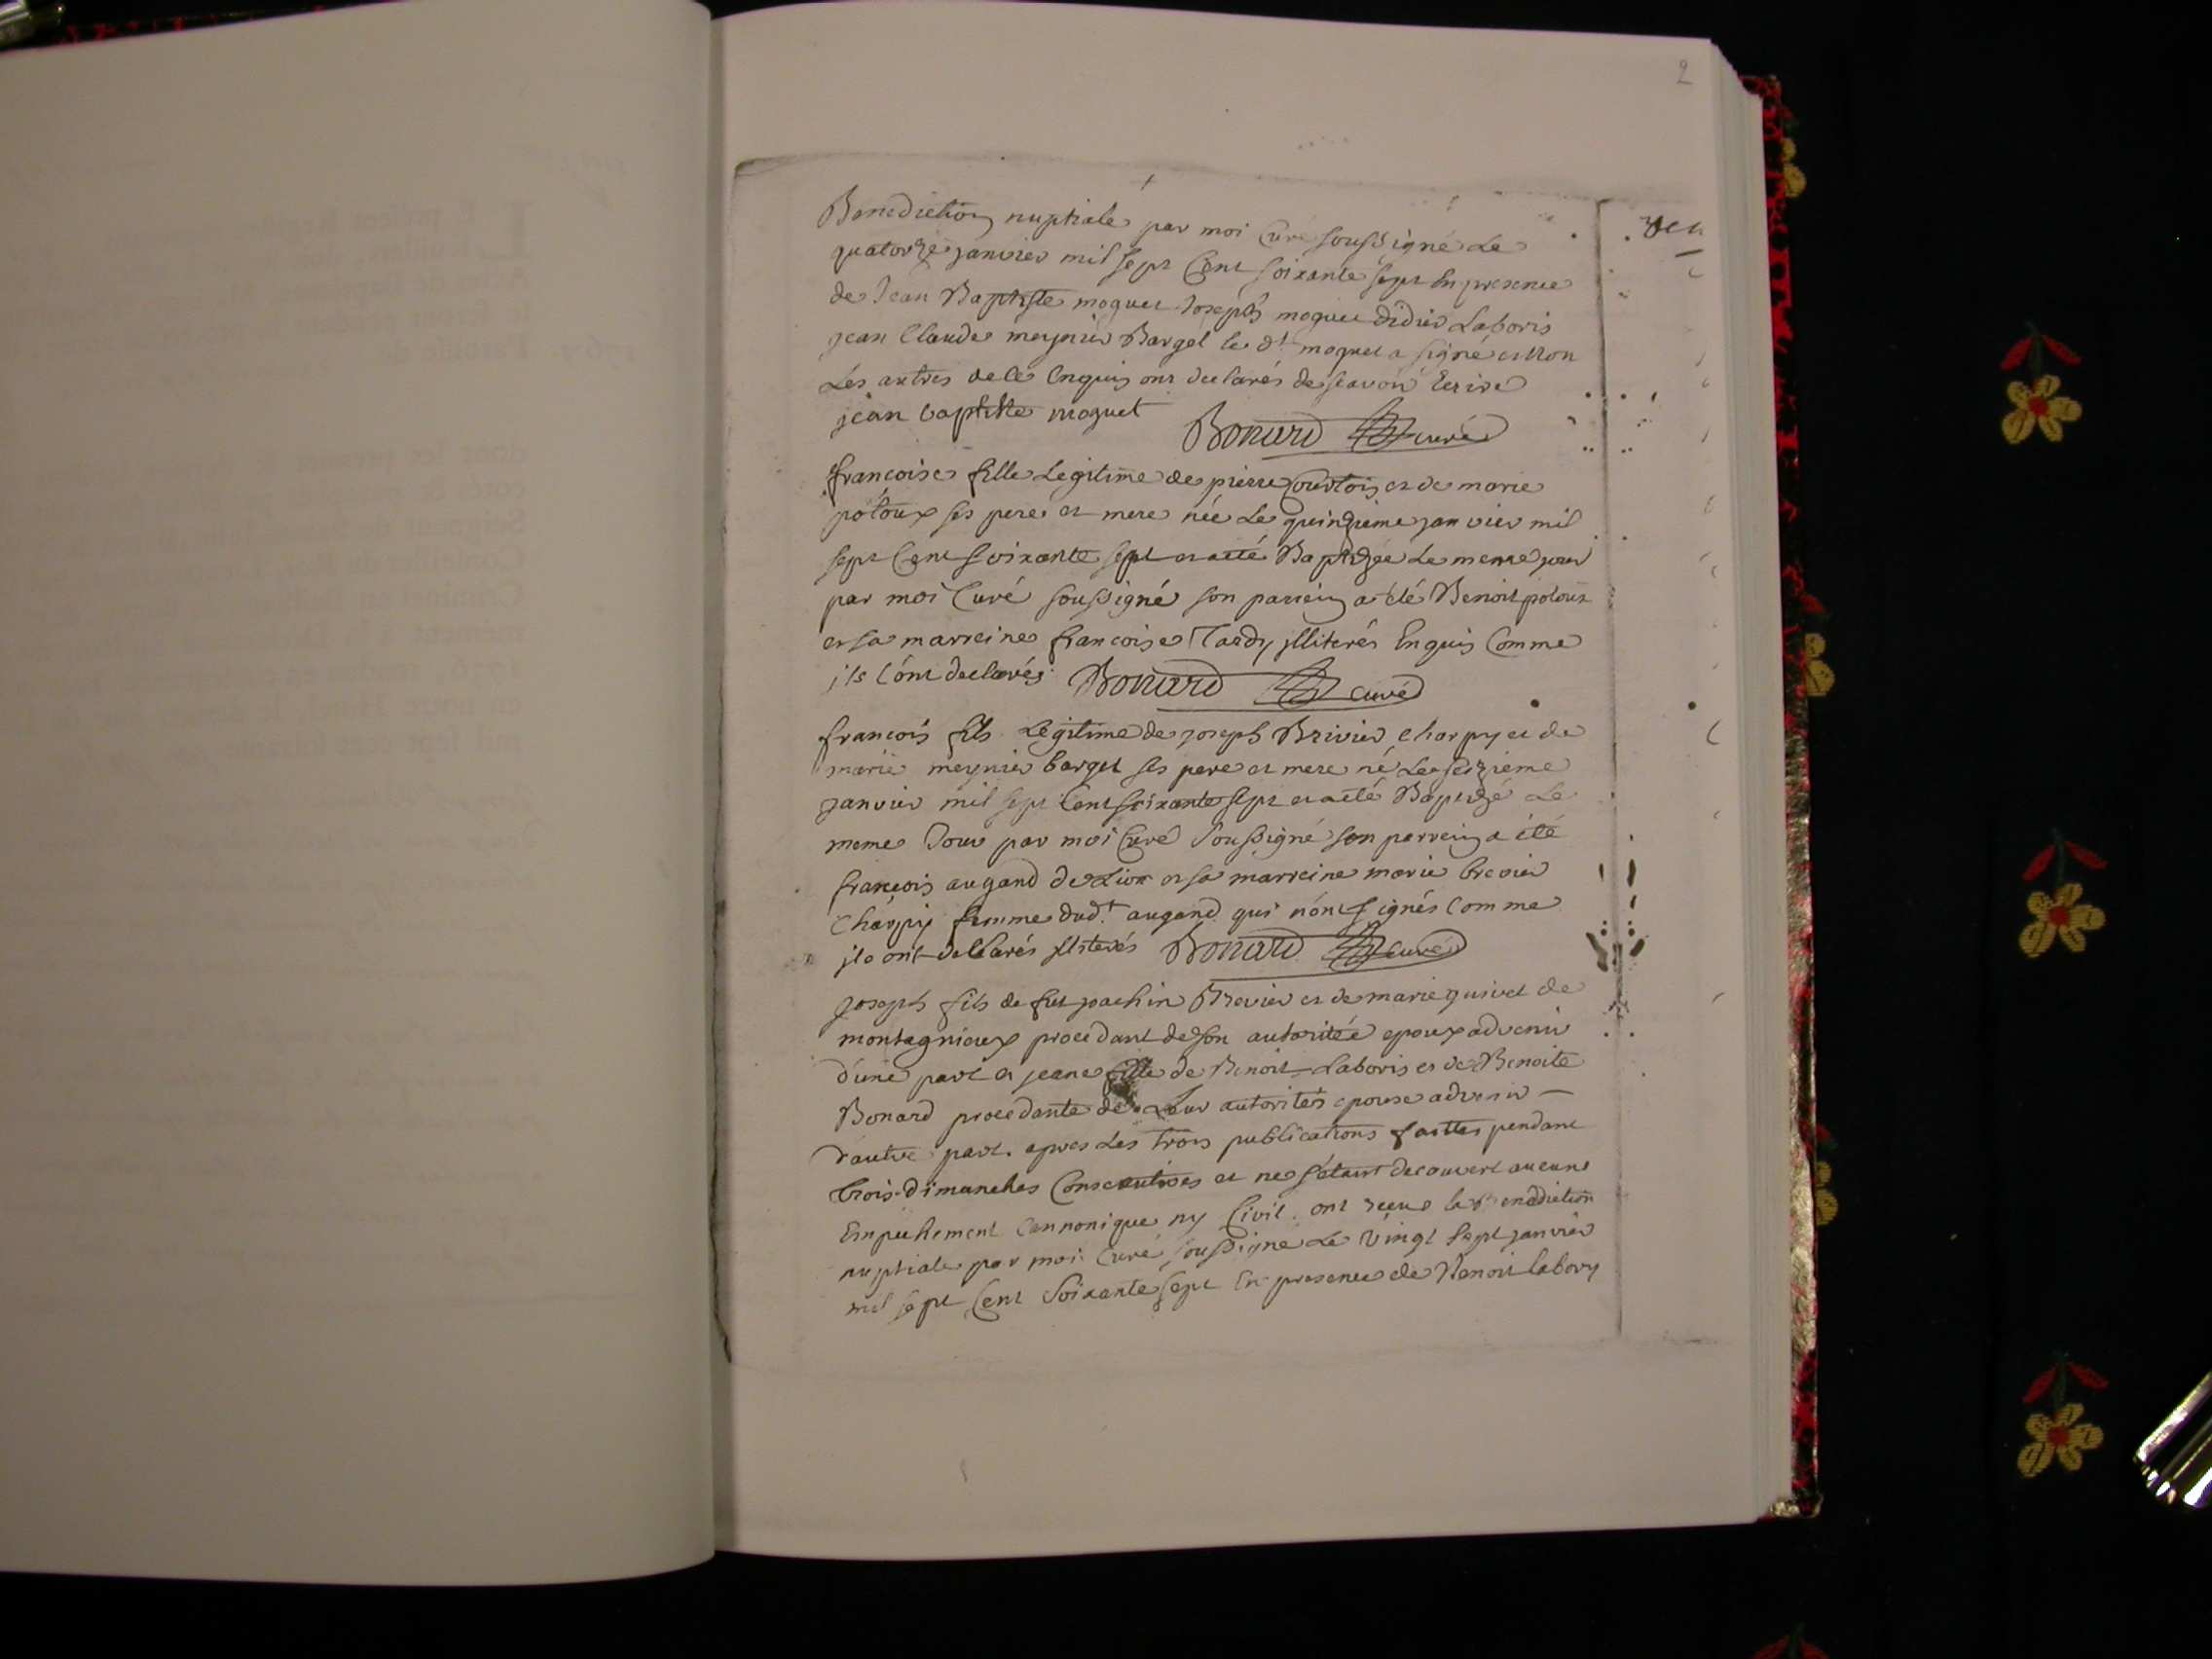 2
Benediction nuptiale par moi Curé soussigné Le
quatorze janvier mil sept Cent soixante sept En presence
de Jean Baptiste moguet Joseph moguet didier Laboris
jean Claude meynier Barget le dt moguet a signé et Non
Les autres de ce Enquis ont declarés de scavoir Ecrire
jean baptiste moguet Bonard curé
françoise fille Legitime de pierre Courtois et de marie
potoux ses pere et mere née Le quinzieme janvier mil
sept Cent soixante sept et a été Baptizée Le meme jour
par moi Curé soussigné son parrein a été Benoit potoux
et sa marreine francoise Tardy illiterés Enquis Comme
ils l'ont declarés Bonard curé
francois fils Legitime de joseph Brivier charpy et de
marie meynier barget ses pere et mere né Le seizieme
janvier mil sept Cent soixante sept et a été Baptizé Le
meme Jour par moi Curé Soussigné son parrein a été
francois augand de Lion et sa marreine marie brevier
Charpy femme dudt augand qui n'ont signés Comme
ils ont declarés illiterés Bonard curé
joseph fils de fut joachin Brevier et de marie guivet de
montagnieux procedant de son autoritée epoux advenir
d'une part et jeane fille de Benoit Laboris et de Benoite
Bonard procedante de Leur autorités epouse advenir —
d'autre part. apres Les trois publications faittes pendant
trois dimanches Consecutives et ne s'étant decouvert aucuns
Empechement Cannonique ny Civil. ont receus la Benediction
nuptiale par moi Curé soussigné Le vingt sept janvier
mil sept Cent Soixante sept En presence de Benoit labory